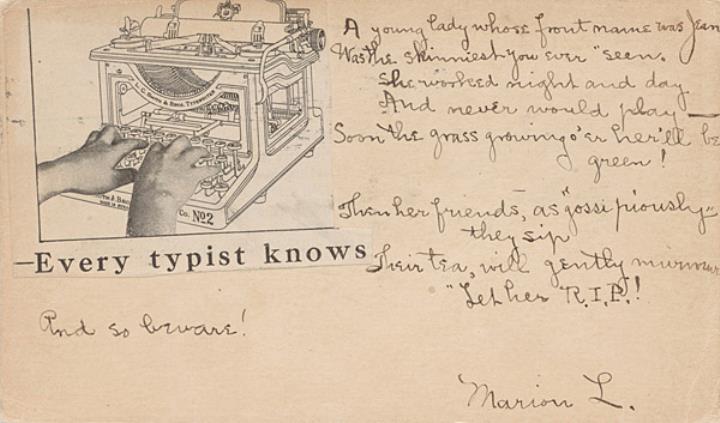 L.C. Smith & Bros. Typewriter
Co. No2
—Every typist knows
And so beware!
A young lady whose front name was Jean
Was the skinniest you ever "seen.
She worked night and day
And never would play —
Soon the grass growing o'er her'll be
green!
Then her friends, as "gossipiously"
they sip
Their tea, will gently murmur
"Let her R.I.P.!
Marion L.